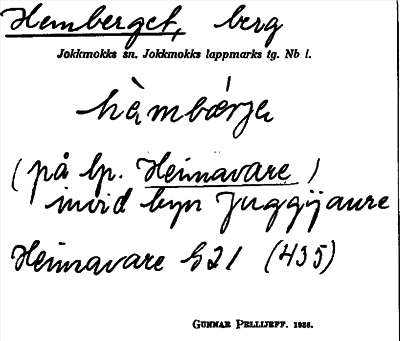 Hemberget, berg
Jokkmokks sn. Jokkmokks lappmarks tg. Nb l.
hèmbœ́rje
(på lp. Heimavare)
invid byn Juggijaure
Heimavare h21 (435)
GUNNAR PELLIJEFF. 1936.